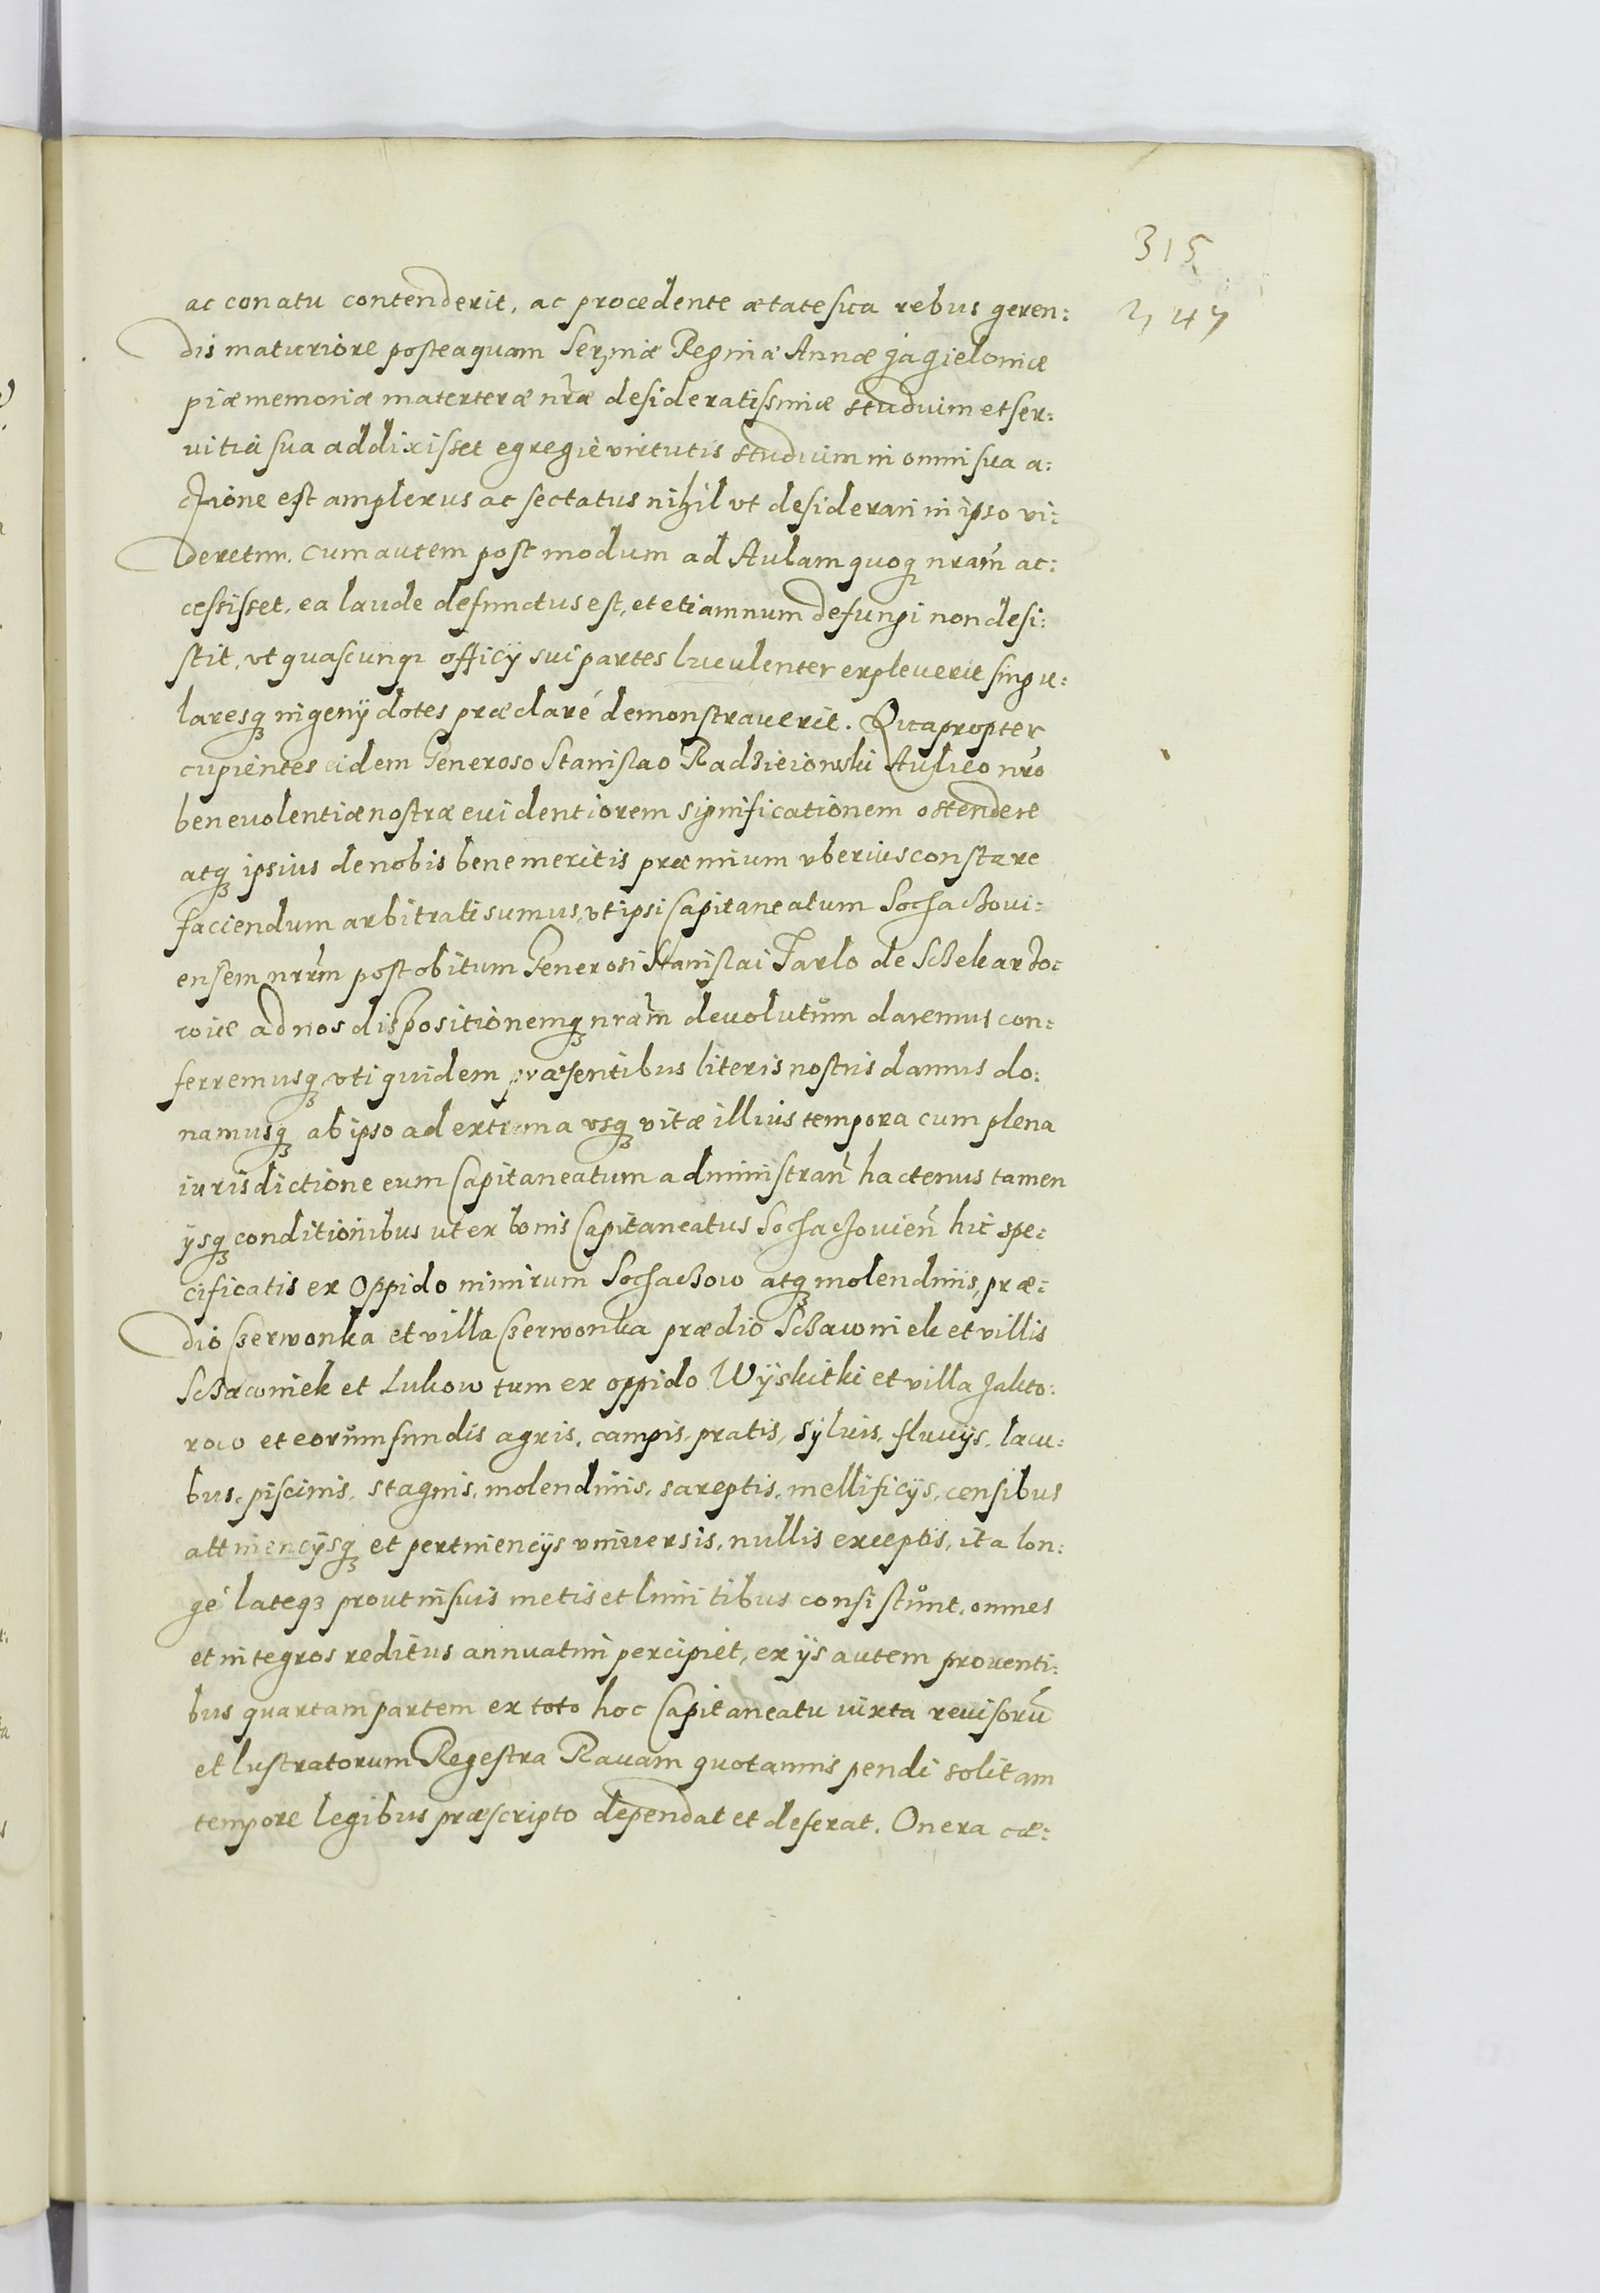 315
247
ac conatu contenderit, ac procedente ætate sua rebus geren:
dis maturiore posteaquam Serᷓmæ Reginæ Annæ Jagieloniæ
piæ memoriæ materteræ nr̃æ desideratissimæ studium et ser:
vitia sua addixisset egregiè virtutis studium in omni sua a:
ctione est amplexus ac sectatus nihil vt desiderari in ipso vi:
deretur. Cum autem post modum ad Aulam quoqꝫ nram̃ ac:
cessisset, ea laude defunctus est, et etiamnum defungi non desi:
stit, vt quascunqꝫ officij sui partes luculenter expleuerit singu:
laresqꝫ ingenij dotes præclaré demonstrauerit. Quapropter
cupientes eidem Generoso Stanislao Radzieiowski Aulico nr̃o
beneuolentiæ nostræ euidentiorem significationem ostendere
atqꝫ ipsius de nobis benemeritis præmium vberius constare
faciendum arbitrati sumus, vt ipsi Capitaneatum Sochaczoui:
ensem nrũm post obitum Generosi Stanislai Tarlo de Sczekarzo:
wice ad nos dispositionemqꝫ nram̃ deuolutům daremus con:
ferremusqꝫ vti quidem præsentibus literis nostris damus do:
namusqꝫ ab ipso ad extrema vsqꝫ vitæ illius tempora cum plena
iurisdictione eum Capitaneatum administrañ hactenus tamen
ijsqꝫ conditionibus ut ex bonis Capitaneatus Sochaczouieñ hic spe:
cificatis ex Oppido nimirum Sochaczow atqꝫ molendinis, præ:
dio Czerwonka et villa Czerwonka prædio Sczawinek et villis
Sczawinek et Lukow tum ex oppido Wÿskitki et villa Jakto:
row et eorům fundis agris, campis, pratis, sÿluis, fluuijs, lacu:
bus, piscinis, stagnis, molendinis, sareptis, mellificijs, censibus
attinencijsqꝫ et pertinencijs vniuersis, nullis exceptis, ita lon:
gé lateqꝫ prout in suis metis et limitibus consistůnt, omnes
et integros reditus annuatim percipiet, ex ijs autem prouenti:
bus quartam partem ex toto hoc Capitaneatu iuxta reuisorũ
et lustratorum Regestra Rauam quotannis pendi solitam
tempore legibus præscripto dependat et deferat. Onera cæ: